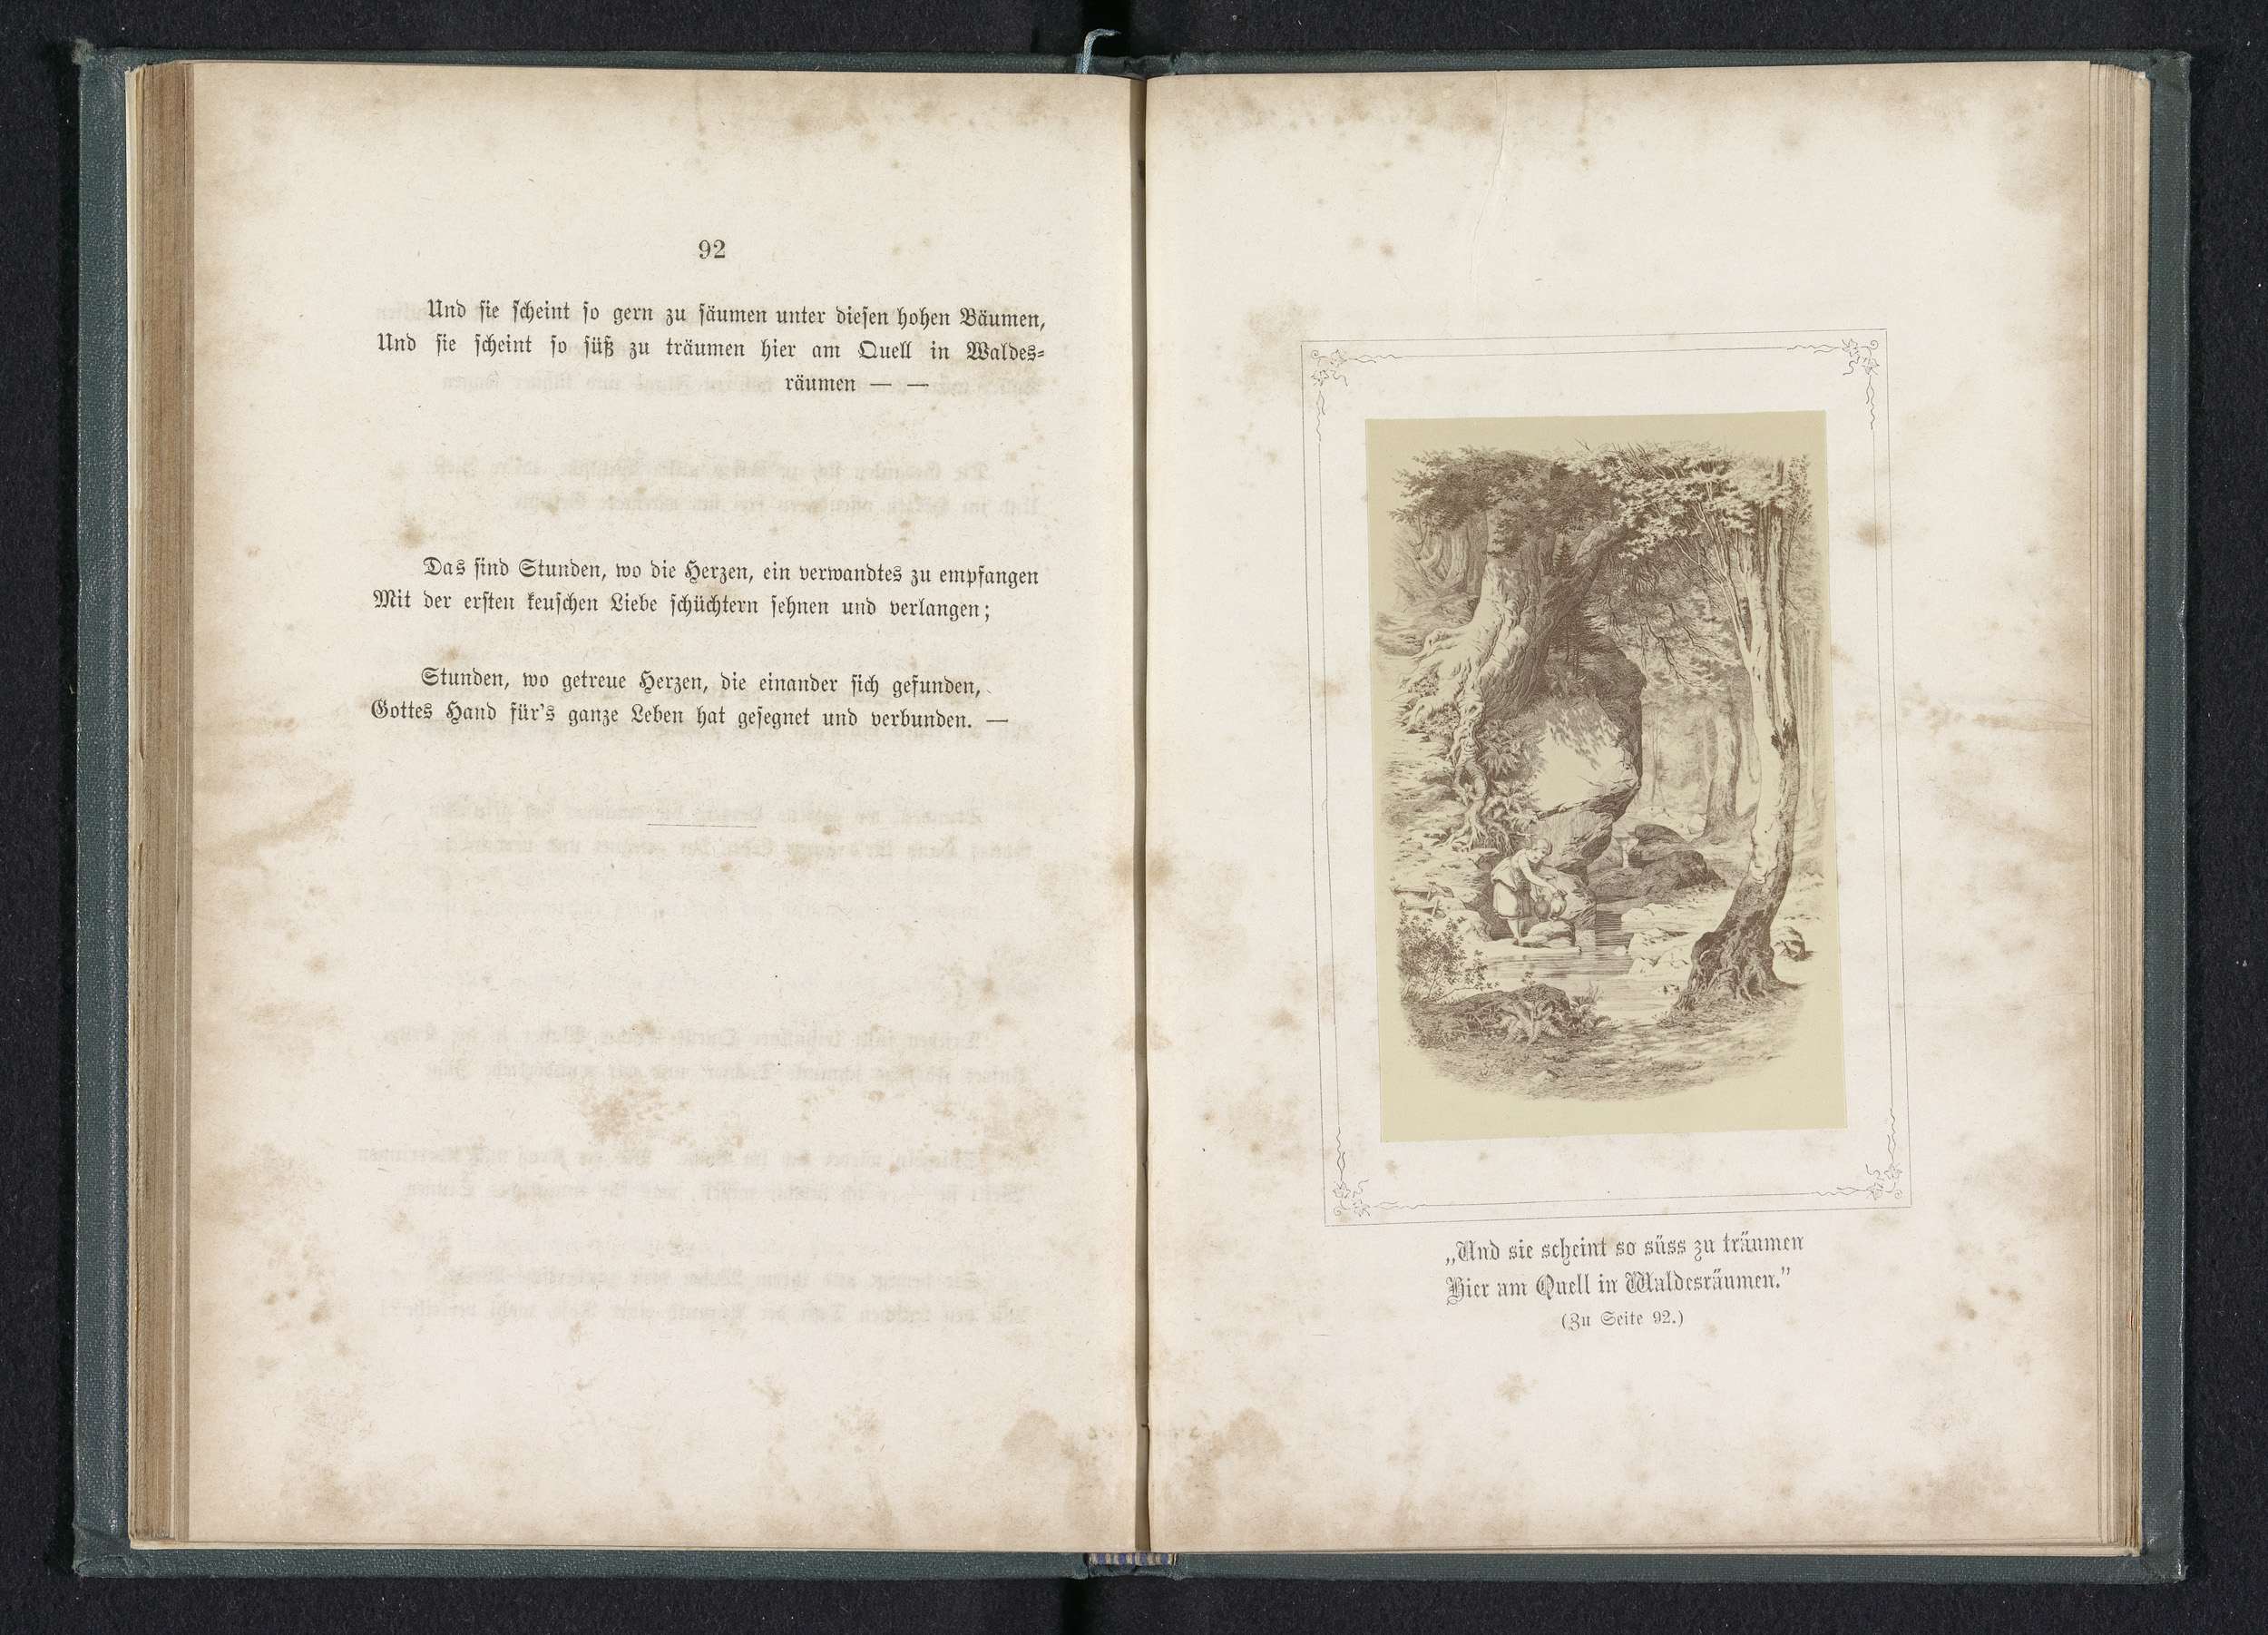 92
Und sie scheint so gern zu säumen unter diesen hohen Bäumen,
Und sie scheint so süß zu träumen hier am Quell in Waldes-
räumen — —
Das sind Stunden, wo die Herzen, ein verwandtes zu empfangen
Mit der ersten keuschen Liebe schüchtern sehnen und verlangen;
Stunden, wo getreue Herzen, die einander sich gefunden,
Gottes Hand für's ganze Leben hat gesegnet und verbunden. —
„Und sie scheint so süss zu träumen
Hier am Quell in Waldesräumen.”
(Zu Seite 92.)